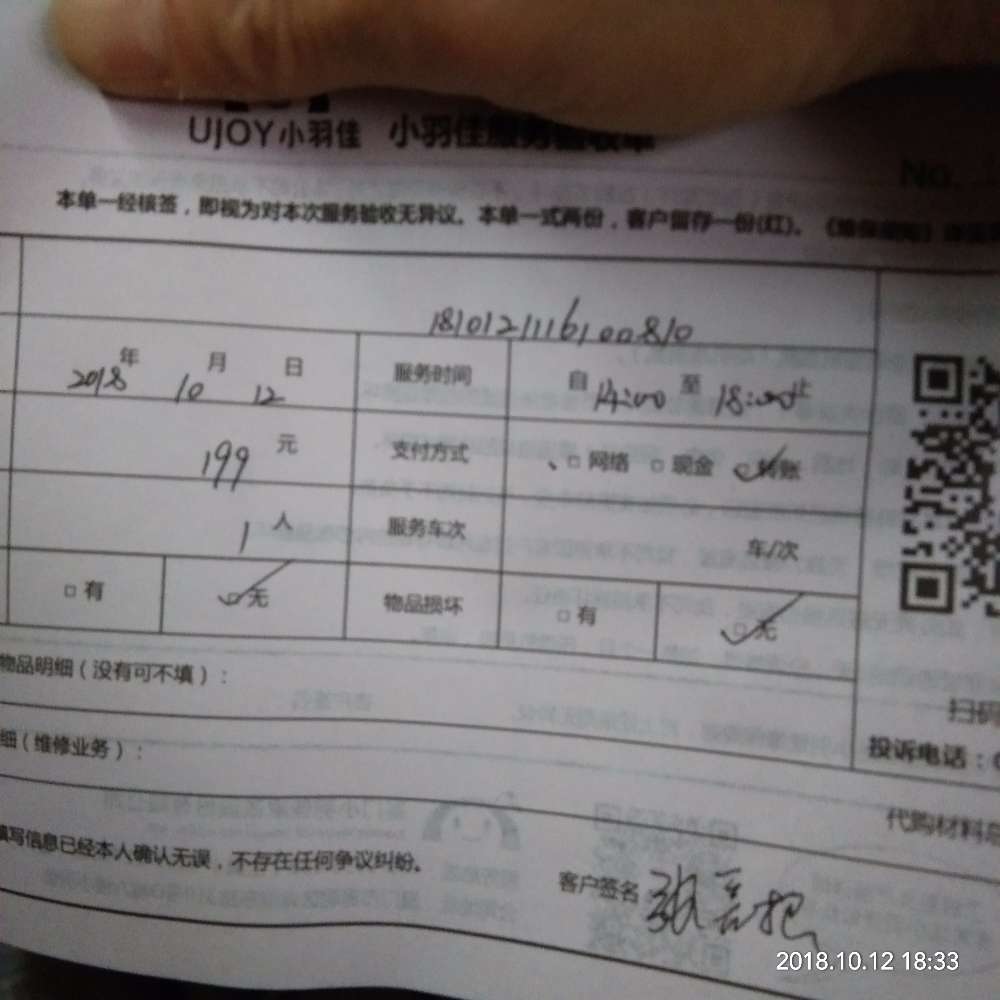 UJOY小羽佳 小羽佳服务验收单
No.
本单一经核签，即视为对本次服务验收无异议。本单一式两份，客户留存一份(红)。
1810121116100810
2018年 10月 12日 服务时间 自14:00至18:00止
199元 支付方式 □网络 □现金 ☑转账
1人 服务车次 车/次
□有 ☑无 物品损坏 □有 ☑无
物品明细（没有可不填）：
细（维修业务）：
扫码
投诉电话：
代购材料
填写信息已经本人确认无误，不存在任何争议纠纷。
客户签名
2018.10.12 18:33